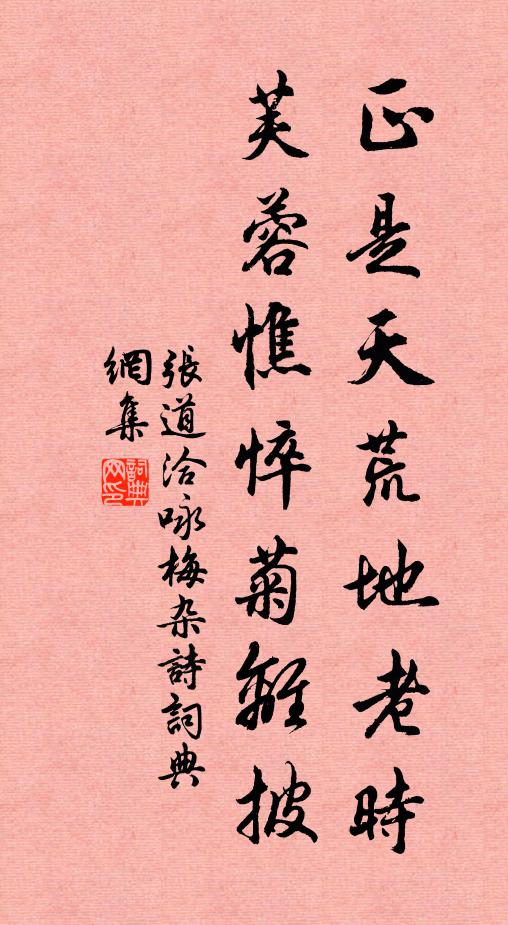 正是天荒地老時
芙蓉憔悴菊離披
張道洽咏梅杂詩詞典
網集
詞典網印